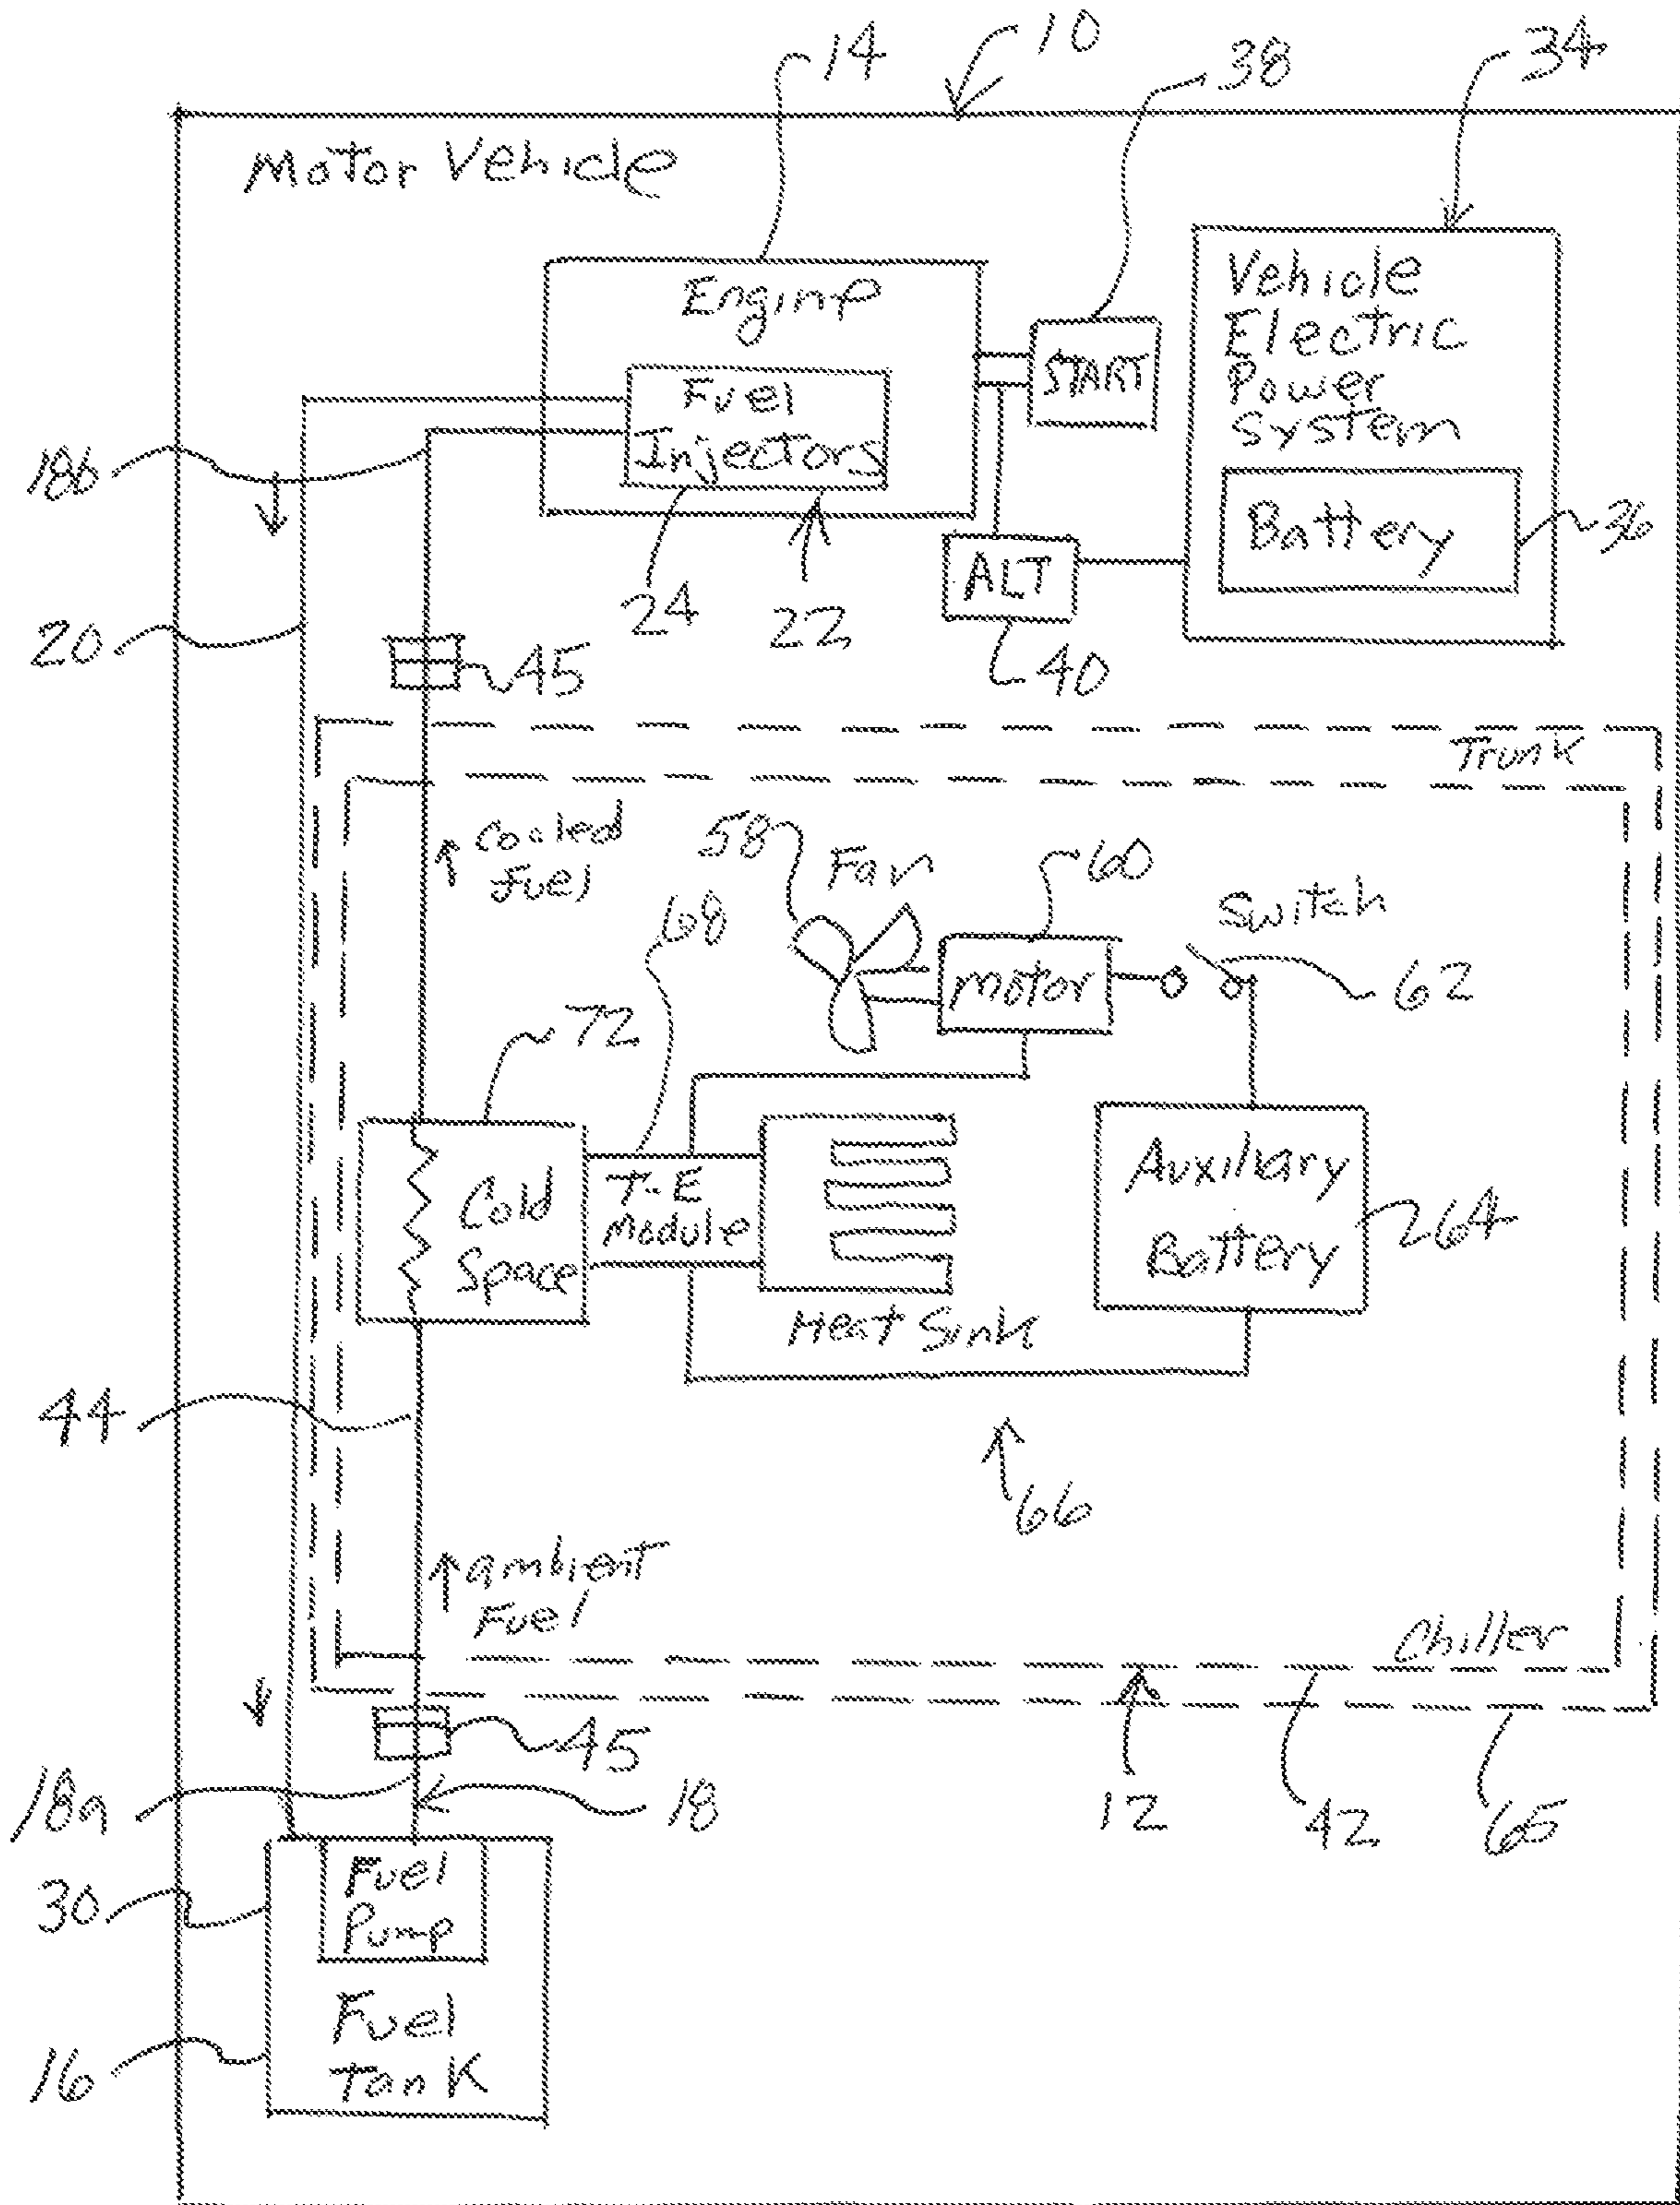 14
10
38
34
Motor Vehicle
Engine
Fuel
Injectors
START
Vehicle
Electric
Power
System
Battery
36
18b
24
22
ALT
40
20
45
Trunk
Cooled
Fuel
58
Fan
60
Switch
68
motor
62
72
Cold
Space
T-E
Module
Heat Sink
Auxiliary
Battery
264
44
66
ambient
Fuel
Chiller
45
18a
18
12
42
65
Fuel
Pump
30
Fuel
Tank
16